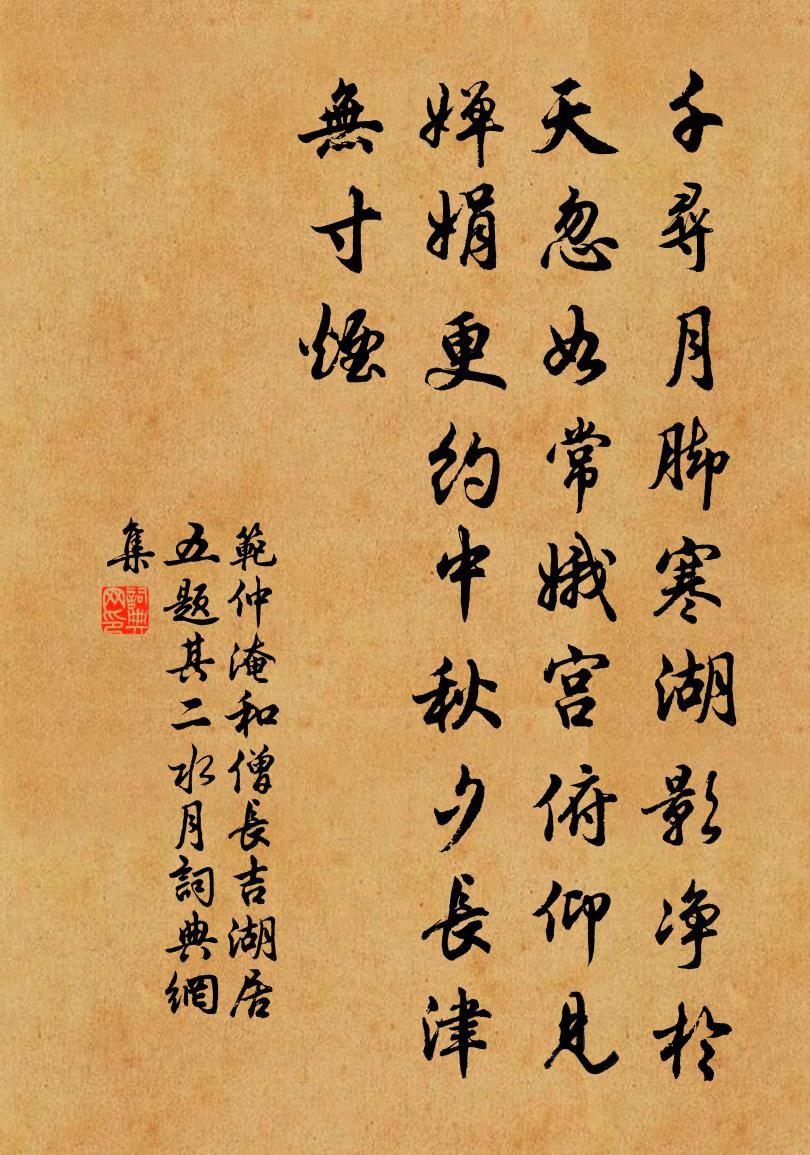 千尋月脚寒湖影净於
天忽如常娥宫俯仰見
嬋娟更約中秋夕長津
無寸煙
範仲淹和僧長吉湖居
五題其二水月詞典網
集
詞典
网印